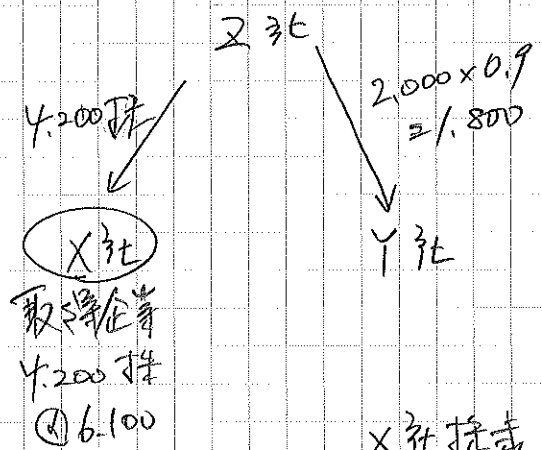 Z社
4,200株
2,000×0.9
=1,800
X社
Y社
取得企業
4,200株
@6,100
X社株式